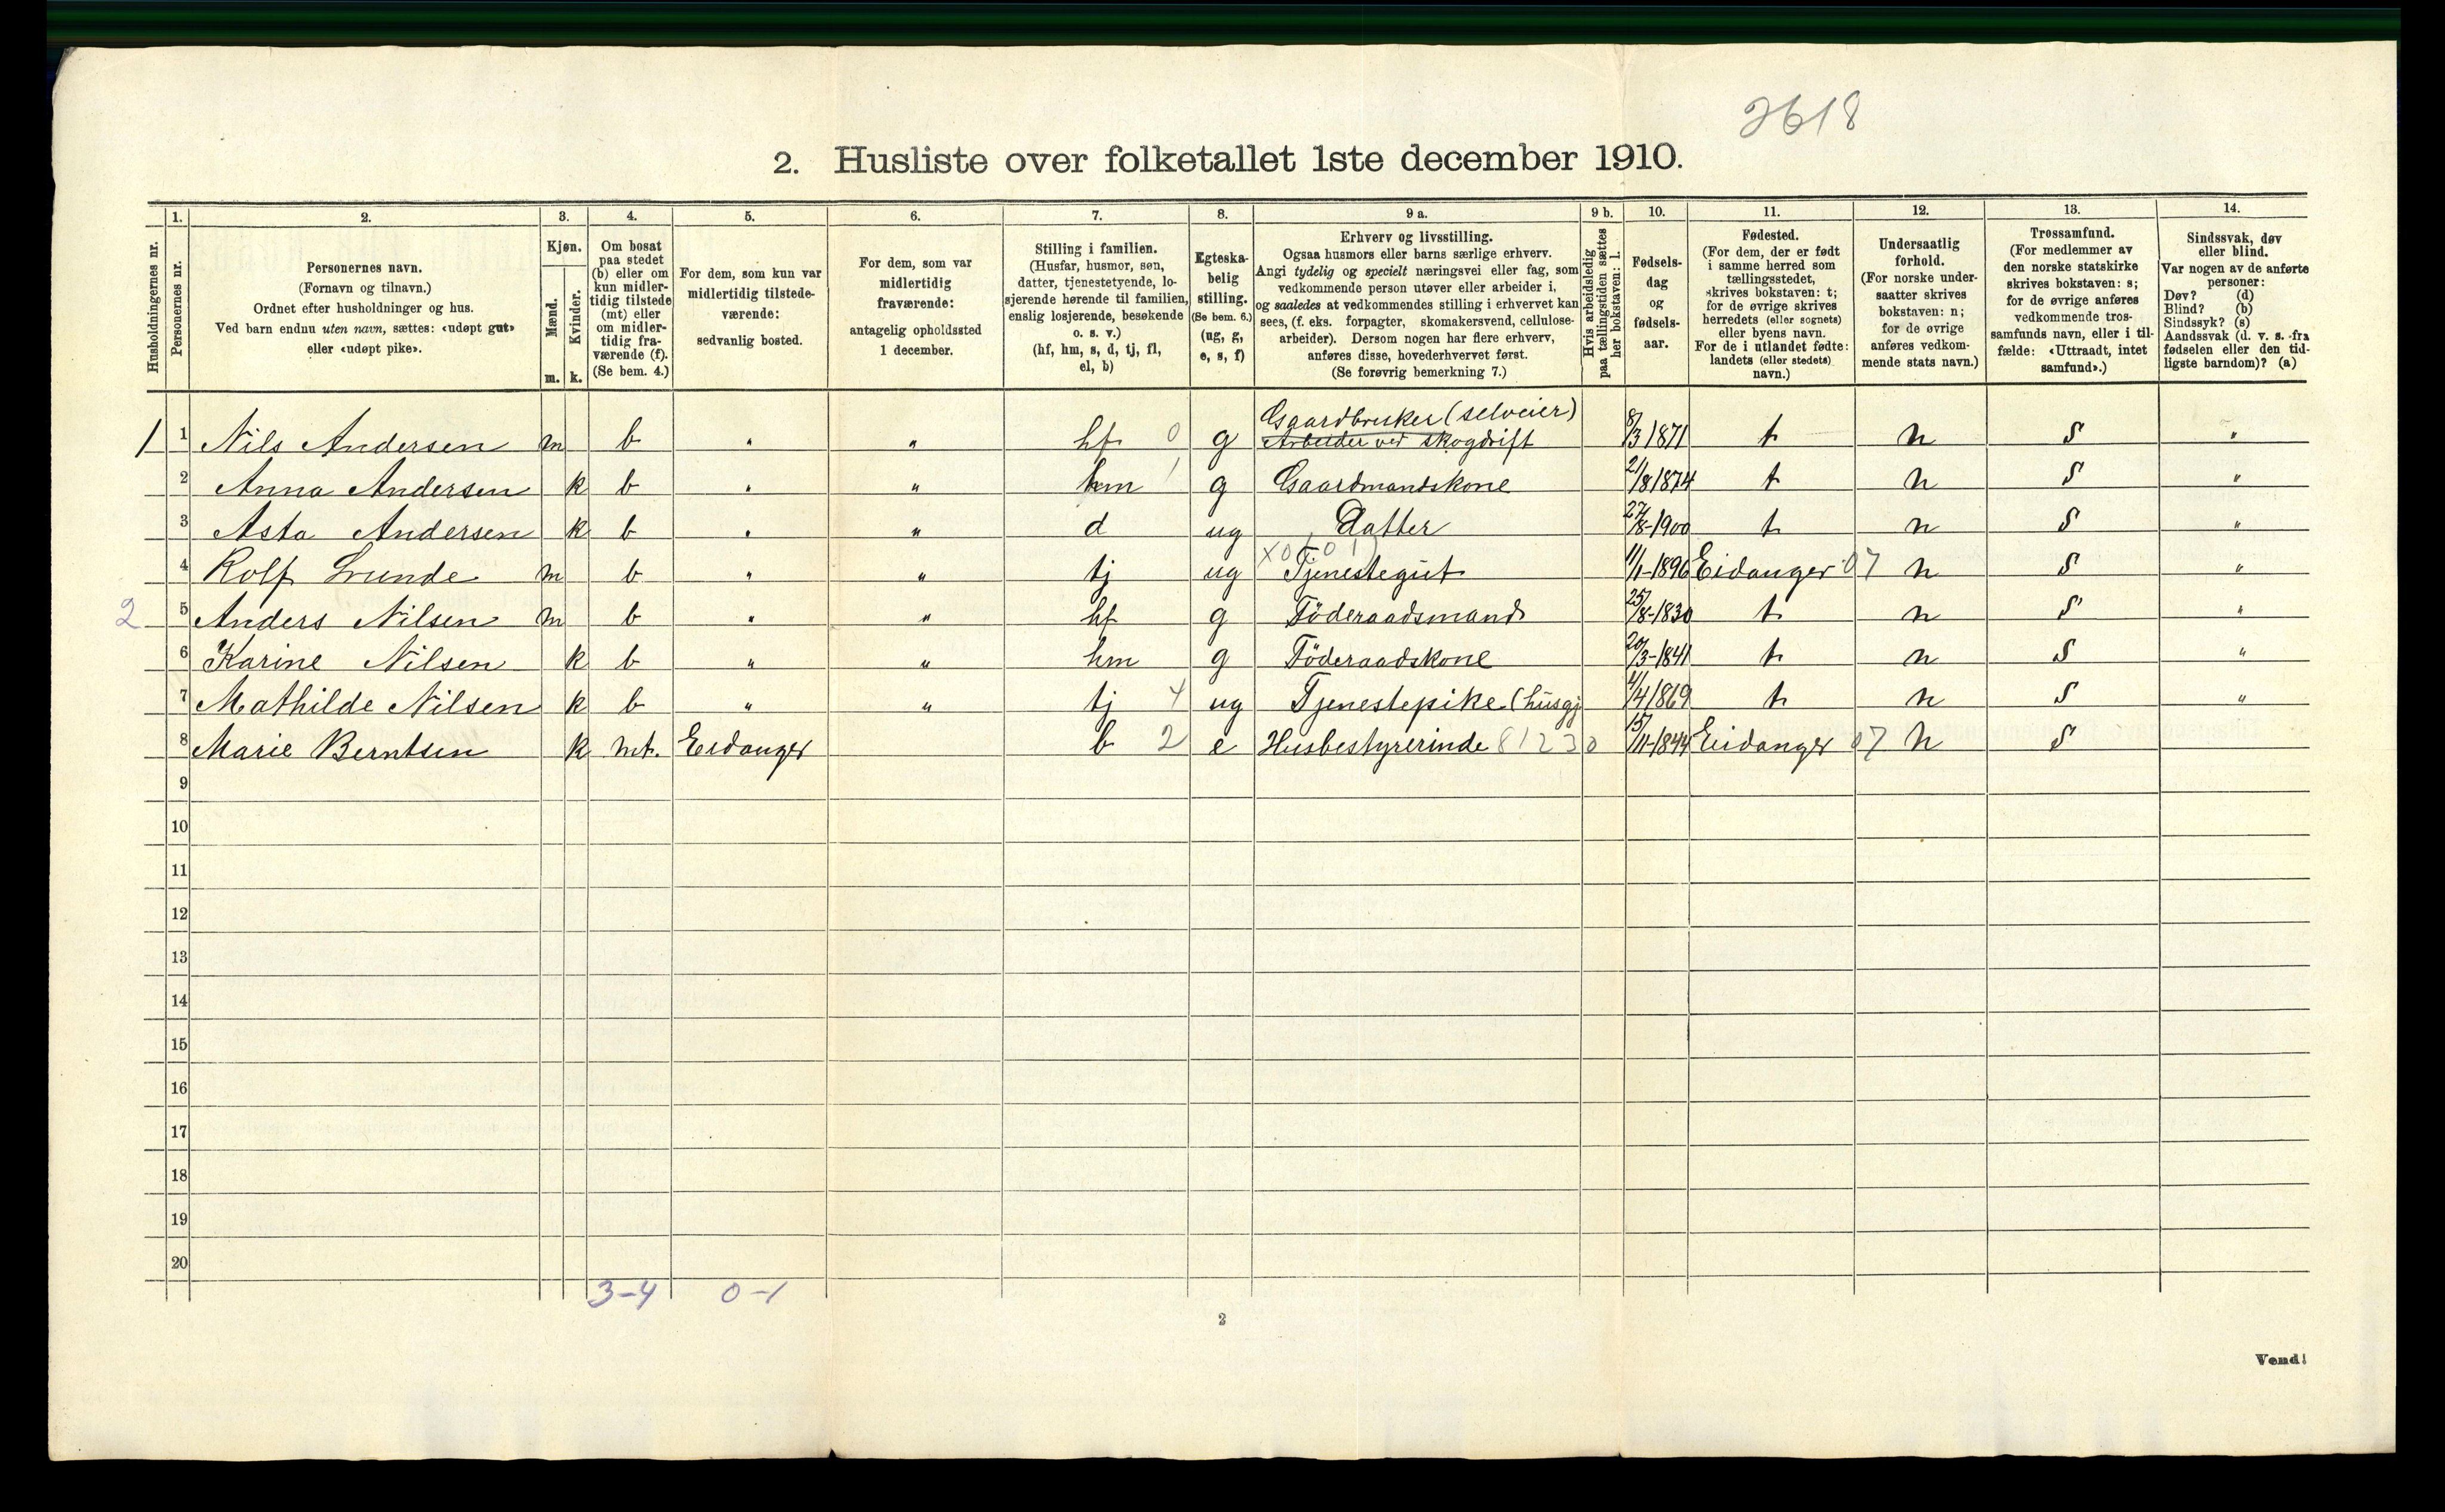 2618
2. Husliste over folketallet 1ste december 1910.
1. 2. 3. 4. 5. 6. 7. 8. 9 a. 9 b. 10. 11. 12. 13. 14.
Husholdningernes nr.
Personernes nr.
Personernes navn.
(Fornavn og tilnavn.)
Ordnet efter husholdninger og hus.
Ved barn endnu uten navn, sættes: «udøpt gut»
eller «udøpt pike».
Kjøn.
Mænd.
Kvinder.
m. k.
Om bosat
paa stedet
(b) eller om
kun midler-
tidig tilstede
(mt) eller
om midler-
tidig fra-
værende (f).
(Se bem. 4.)
For dem, som kun var
midlertidig tilstede-
værende:
sedvanlig bosted.
For dem, som var
midlertidig
fraværende:
antagelig opholdssted
1 december.
Stilling i familien.
(Husfar, husmor, søn,
datter, tjenestetyende, lo-
sjerende hørende til familien,
enslig losjerende, besøkende
o. s. v.)
(hf, hm, s, d, tj, fl,
el, b)
Egteska-
belig
stilling.
(Se bem. 6.)
(ug, g,
e, s, f)
Erhverv og livsstilling.
Ogsaa husmors eller barns særlige erhverv.
Angi tydelig og specielt næringsvei eller fag, som
vedkommende person utøver eller arbeider i,
og saaledes at vedkommendes stilling i erhvervet kan
sees, (f. eks. forpagter, skomakersvend, cellulose-
arbeider). Dersom nogen har flere erhverv,
anføres disse, hovederhvervet først.
(Se forøvrig bemerkning 7.)
Hvis arbeidsledig
paa tællingstiden sættes
her bokstaven: l.
Fødsels-
dag
og
fødsels-
aar.
Fødested.
(For dem, der er født
i samme herred som
tællingsstedet,
skrives bokstaven: t;
for de øvrige skrives
herredets (eller sognets)
eller byens navn.
For de i utlandet fødte:
landets (eller stedets)
navn.)
Undersaatlig
forhold.
(For norske under-
saatter skrives
bokstaven: n;
for de øvrige
anføres vedkom-
mende stats navn.)
Trossamfund.
(For medlemmer av
den norske statskirke
skrives bokstaven: s;
for de øvrige anføres
vedkommende tros-
samfunds navn, eller i til-
fælde: «Uttraadt, intet
samfund».)
Sindssvak, døv
eller blind.
Var nogen av de anførte
personer:
Døv? (d)
Blind? (b)
Sindssyk? (s)
Aandssvak (d. v. s. fra
fødselen eller den tid-
ligste barndom)? (a)
Gaardbruker (selveier)
1 1 Nils Andersen m b " " hf 0 g Arbeider ved skogdrift 8/3 1871 t n s "
2 Anna Andersen k b " " hm 1 g Gaardmandskone 21/8 1874 t n s "
3 Asta Andersen k b " " d ug Datter 27/8-1900 t n s "
X0 1 0 1
4 Rolf Lunde m b " " tj ug Tjenestegut 11/1-1896 Eidanger 07 n s "
2 5 Anders Nilsen m b " " hf g Föderaadsmand 25/8-1830 t n s "
6 Karine Nilsen k b " " hm g Föderaadskone 20/3-1841 t n s "
7 Mathilde Nilsen k b " " tj 4 ug Tjenestepike (husgj 4/4 1869 t n s "
8 Marie Berntsen k mt. Eidanger b 2 e Husbestyrerinde 81230 15/11-1844 Eidanger 07 n s
9
10
11
12
13
14
15
16
17
18
19
20
3-4 0-1
2
Vend!